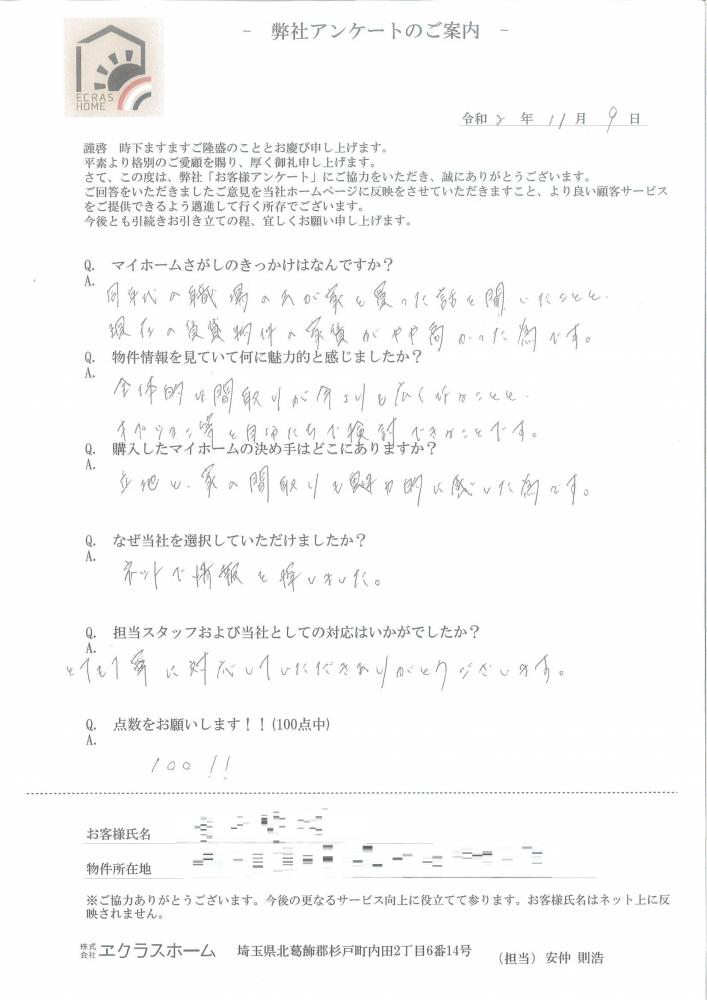 ECRAS
HOME
- 弊社アンケートのご案内 -
令和 2 年 11 月 9 日
謹啓 時下ますますご隆盛のこととお慶び申し上げます。
平素より格別のご愛顧を賜り、厚く御礼申し上げます。
さて、この度は、弊社「お客様アンケート」にご協力をいただき、誠にありがとうございます。
ご回答をいただきましたご意見を当社ホームページに反映をさせていただきますこと、より良い顧客サービス
をご提供できるよう邁進して行く所存でございます。
今後とも引続きお引き立ての程、宜しくお願い申し上げます。
Q. マイホームさがしのきっかけはなんですか？
A.
同年代の職場の人が家を買った話を聞いたことと、
現在の賃貸物件の家賃がやや高かった為です。
Q. 物件情報を見ていて何に魅力的と感じましたか？
A.
全体的に間取りが今よりも広く なことと、
オプション等を自分たちで検討できることです。
Q. 購入したマイホームの決め手はどこにありますか？
A.
立地と、家の間取りを魅力的に感じた為です。
Q. なぜ当社を選択していただけましたか？
A.
ネットで情報を探しました。
Q. 担当スタッフおよび当社としての対応はいかがでしたか？
A.
とても丁寧に対応していただきありがとうございます。
Q. 点数をお願いします！！(100点中)
A.
100！！
お客様氏名
物件所在地
※ご協力ありがとうございます。今後の更なるサービス向上に役立てて参ります。お客様氏名はネット上に反
映されません。
株式会社 ヱクラスホーム 埼玉県北葛飾郡杉戸町内田2丁目6番14号 （担当）安仲 則浩